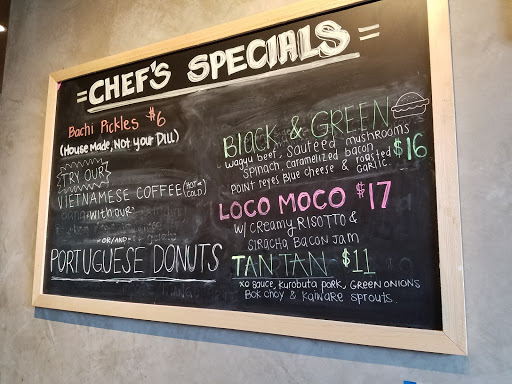 = CHEF'S SPECIALS =
Bachi Pickles $6
(House Made, Not your Dill)
TRY OUR
VIETNAMESE COFFEE (HOT or COLD)
with our
-OR/AND-
PORTUGUESE DONUTS
BLACK & GREEN $16
wagyu beef, sauteed mushrooms
spinach, caramelized bacon
POINT reyes Blue cheese & roasted GARLIC
LOCO MOCO $17
W/ CREAMY RISOTTO &
SIRACHA BACON JAM
TAN TAN $11
XO sauce, Kurobuta pork, GREEN ONIONS
Bok choy & Kaiware sprouts.